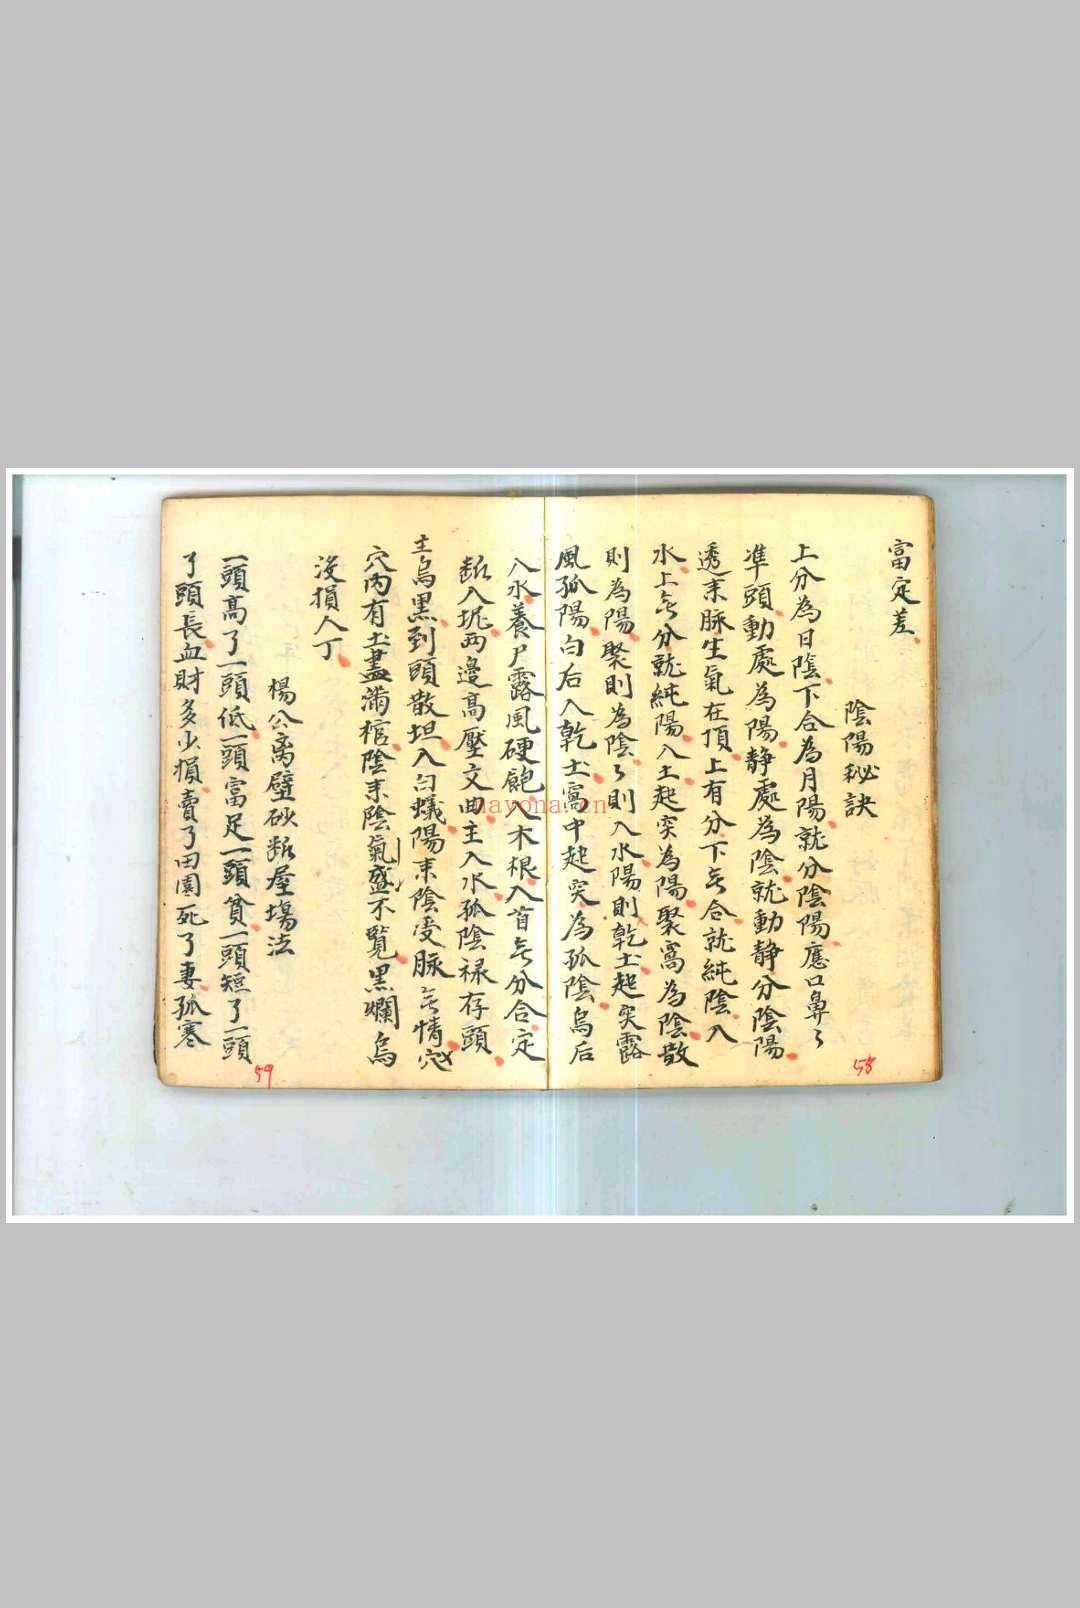 富定差
陰陽秘訣
上分為日陰下合為月陽就分陰陽應口鼻々
準頭動處為陽静處為陰就動静分陰陽
透来脉生氣在頂上有分下无合就純陰入
水上无分就純陽入土起突為陽聚窩為陰散
則為陽聚則為陰々則入水陽則乾土起突露
風孤陽白后入乾土窩中起突為孤陰烏后
入水養尸露風硬飽入木根入首无分合定
断入坭两邉高壓文曲主入水孤陰禄存頭
主烏黒到頭散坦入白蟻陽来陰受脉无情穴
穴内有土盡滿棺陰来陰氣盛不覧黒爛烏
没損人丁
楊公离壁砂断屋塲法
一頭高了一頭低一頭富足一頭貧一頭短了一頭
了頭長血財多少損賣了田園死了妻孤寒
58
59
nayona.cn